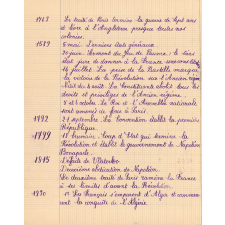 1763 Le traité de Paris termine la guerre de Sept ans
et livre à l'Angleterre presque toutes nos
colonies.
1789 5 mai. L'ouverture des états généraux
20 juin. Serment du Jeu de Paume : le tiers
état jure de donner à la France une constitution
14 juillet. La prise de la Bastille marque
la victoire de la Révolution sur l'Ancien régime
Nuit du 4 août. La Constituante abolit tous les
droits et privilèges de l'Ancien régime.
5 et 6 octobre. Le Roi et l'Assemblée nationale
sont amenés de force à Paris
1792 21 septembre. La Convention établit la première
République.
1799 18 brumaire. Coup d'Etat qui termine la
Révolution et établit le gouvernement de Napoléon
Bonaparte.
1815 Défaite de Waterloo
Deuxième abdication de Napoléon.
Le deuxième traité de Paris ramène la France
à ses limites d'avant la Révolution.
1830 Les Français s'emparent d'Alger et commencent
la conquête de l'Algérie.